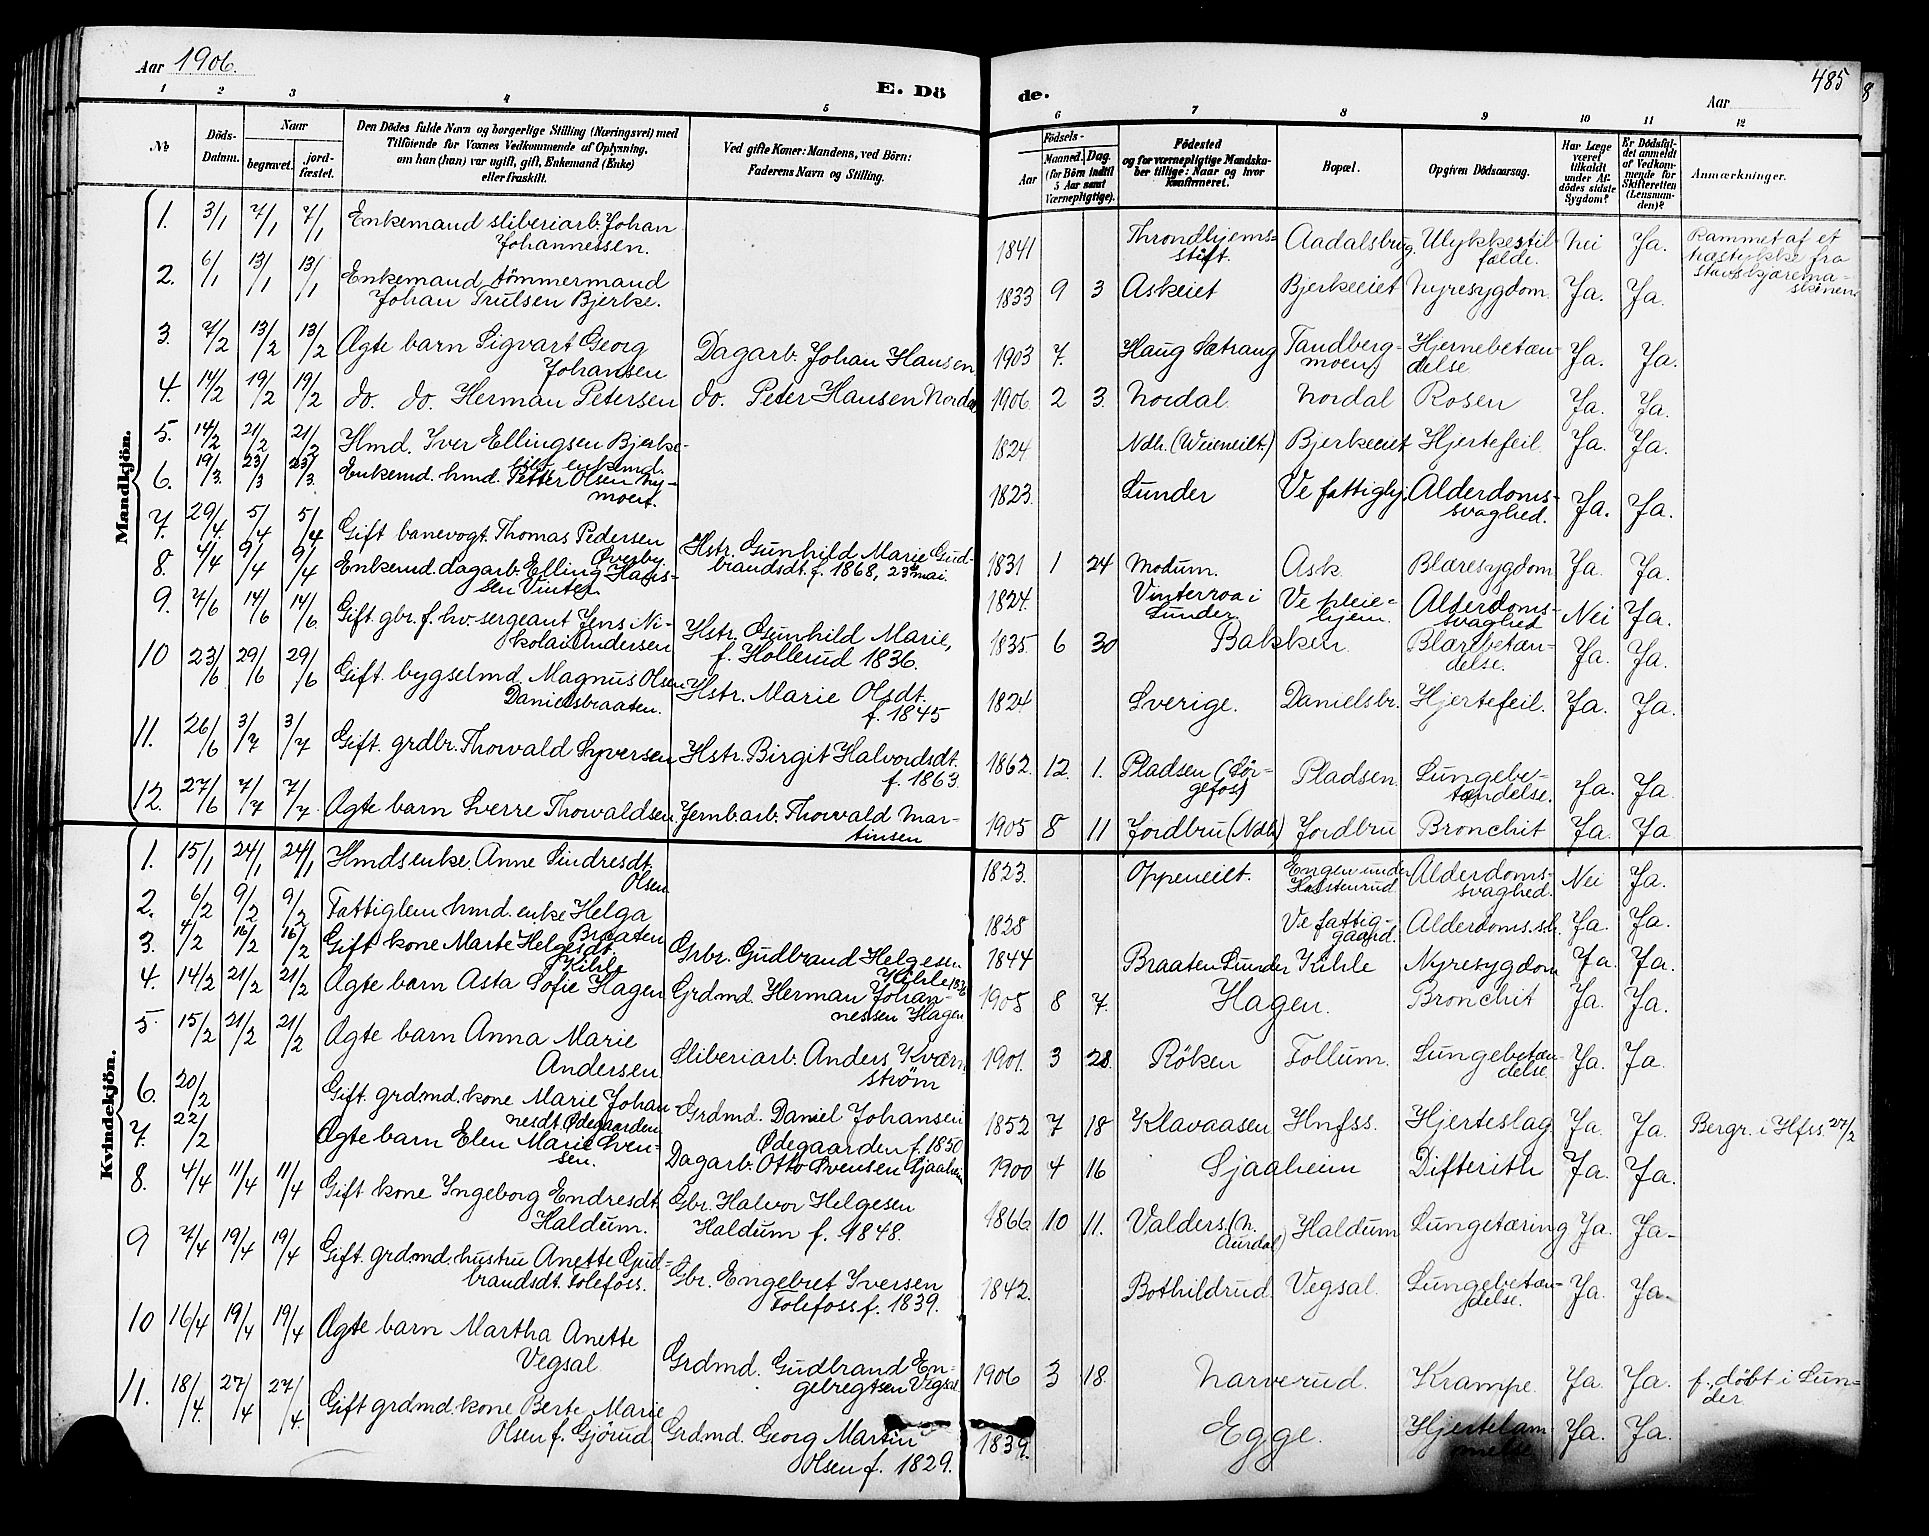 Aar 1906.
E. Dö
de.
485
Aar
1 2 3 4 5 6 7 8 9 10 11 12
No
Döds-Datum.
Naar
begravet.
jord-fæstet.
Den Dödes fulde Navn og borgerlige Stilling (Næringsvei) med
Tilföiende for Voxnes Vedkommende af Oplysning,
om han (hun) var ugift, gift, Enkemand (Enke)
eller fraskilt.
Ved gifte Koner: Mandens, ved Börn:
Faderens Navn og Stilling.
Födsels-
Aar
Maaned. Dag.
(for Börn indtil
5 Aar samt
Værnepligtige).
Födested
og for værnepligtige Mandska-
ber tillige: Naar og hvor
konfirmeret.
Bopæl.
Opgiven Dödsaarsag.
Har Læge
været
tilkaldt
under Af-
dödes sidste
Sygdom?
Er Dödsfal-
det anmeldt
af Vedkom-
mende for
Skifteretten
(Lensman-
den)?
Anmærkninger.
Mandkjön.
1. 3/1 7/1 7/1 Enkemand sliberiarb. Johan
Johannessen.
1841 Throndhjems-
stift. Aadalsbrug. Ulykkestil-
fælde. Nei Ja. Rammet af et
træstykke fra
2. 6/1 13/1 13/1 Enkemand tömmermand
Johan Trulsen Bjerke.
1833 9 3 Askeiet Bjerkeeiet Nyresygdom. Ja. Ja.
3. 7/2 13/2 13/2 Ægte barn Sigvart Georg
Johansen Dagarb. Johan Hansen
1903 7. Haug Sætrang Tandberg-
moen Hjernebetæn-
delse Ja. Ja.
4. 14/2 19/2 19/2 do. do. Herman Petersen do. Peter Hansen Nordal
1906 2 3. Nordal Nordal Rosen Ja. Ja.
5. 14/2 21/2 21/2 Hmd. Iver Ellingsen Bjerke-
eiet, enkemd.
1824 Ndh. (Weieneilt.) Bjerkeeiet Hjertefeil. Ja. Ja.
6. 19/3 23/3 23/3. Enkemd. hmd. Petter Olsen Ny-
moen.
1823. Lunder Ve fattiglj. Alderdoms-
svaghed. Ja. Ja.
7. 29/4. 5/4 5/4 Gift banevogt. Thomas Pedersen
Øverby Hstr. Gunhild Marie Gud-
brandsdt. f. 1868, 23de mai.
1831 1 24 Modum. Ask. Blæresygdom Ja. Ja.
8. 4/4 9/4 9/4 Enkemd. dagarb. Elling Hans-
sen Vinter.
1824. Vinterroa i
Lunder Ve pleie-
hjem. Alderdoms-
svaghed Nei Ja.
9. 7/6 14/6 14/6. Gift gbr. f. hv. sergeant Jens Ni-
kolai Andersen Hstr. Gunhild Marie,
f. Hollerud 1836.
1835 6 30 Bakken. Blærebetæn-
delse. Ja. Ja.
10 23/6 29/6 29/6 Gift. bygselmd. Magnus Olsen
Danielsbraaten. Hstr. Marie Olsdt.
f. 1845
1824 Sverige. Danielsbr. Hjertefeil. Ja. Ja.
11. 26/6 3/7 3/7 Gift. grdbr. Thorvald Syversen Hstr. Birgit Halvordsdt.
f. 1863.
1862. 12. 1. Pladsen (Sör-
gefos) Pladsen. Lungebe-
tændelse. Ja. Ja
12. 27/6 7/7 7/7. Ægte barn Sverre Thorvaldsen Jernb.arb. Thorvald Mar-
tinsen
1905 8 11 Jordbru (Ndh) Jordbru Bronchit Ja. Ja
Kvindekjön.
1. 15/1 24/1 24/1 Hmdsenke. Anne Sindresdt.
Olsen
1823. Oppeneilt. Engen under
Halstenrud. Alderdoms-
svaghed. Nei Ja.
2. 6/2 9/2 9/2 Fattiglem hmd. enke Helga
Braaten
1828 Ve fattig-
gaard. Alderdoms.sv. Ja. Ja.
3. 4/2 16/2 16/2 Gift kone Marte Helgesdt.
Kihle Grbr. Gudbrand Helgesen
Kihle
1844 Braaten Lunder Kihle Nyresygdom Ja. Ja.
4. 14/2 21/2 21/2 Ægte barn Asta Sofie Hagen Grdmd. Herman Johan-
nessen Hagen
1905 8 7. Hagen. Bronchit Ja. Ja.
5. 15/2 21/2 21/2 Ægte barn Anna Marie
Andersen Sliberiarb. Anders Kværn
ström
1901. 3 28. Röken Follum. Lungebetæn-
delse. Ja. Ja
6. 20/2 Gift. grdmd. kone Marie Johan-
nesdt. Ødegaarden Grdmd. Daniel Johansen
Ødegaarden f. 1850
1852 7 18 Klavaasen Hnfss. Hjerteslag Ja. Ja. Begr. i Hfss. 27/2
7. 22/2 Ægte barn Elen Marie Sven-
sen. Dagarb. Otto Svensen Sjaaheim
1900 4 16 Sjaaheim Difterith Ja. Ja.
8. 4/4 11/4 11/4 Gift kone Ingeborg Endresdt.
Haldum. Gbr. Halvor Helgesen
Haldum f. 1848.
1866 10 11. Valders. (N.
Aurdal) Haldum Lungetæring Ja. Ja-
9 7/4 19/4 19/4 Gift. grdmd. hustru Anette Gud-
brandsdt. Tolefoss. Gbr. Engebret Iversen
Tolefoss f. 1839.
1842. Bothildrud. Vegsal. Lungebetæn-
delse. Ja. Ja-
10 16/4 19/4 19/4 Ægte barn Martha Anette
Vegsal Grdmd. Gudbrand En-
gebregtsen Vegsal.
1906 3 18. Narverud. Krampe. Ja. Ja. f. döbt i Lun-
der.
11. 18/4. 27/4 27/4. Gift grdmd. kone Berte Marie
Olsen f. Gjörud. Grdmd. Georg Martin
Olsen f. 1829.
1839. Egge. Hjertelam
melse Ja. Ja.